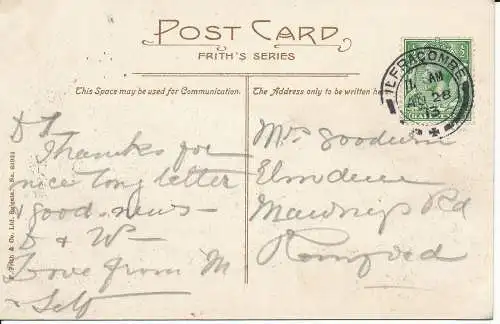 POST CARD
FRITH'S SERIES
This Space may be used for Communication.
The Address only to be written he
ILFRACOMBE
AM
28
13
D F
Thanks for
nice long letter
& good news –
D & W –
Love from M
& Self
Mrs Goodwin
Elmdene
Mawneys Rd
Romford
F. Frith & Co. Ltd. Reigate. No.